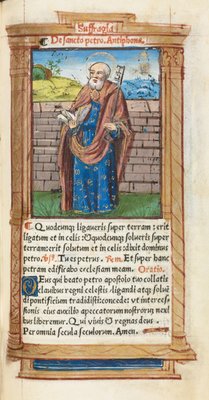 Suffragia
De sancto petro. Antiphona.
Quodcunq; ligaveris super terram: erit
ligatum et in celis & quodcunq; solueris super
terram: erit solutum et in celis dixit dominus
petro. Tu es petrus. Et super hanc
petram edificabo ecclesiam meam. Oratio.
Deus qui beato petro apostolo tuo collatis
clavibus regni celestis ligandi atq; solue
di pontificium tradidisti: concede: ut interces
sionis eius auxilio a peccatorum nostrorum nexi
bus liberemur. Qui vivis & regnas deus.
Per omnia secula seculorum. Amen.